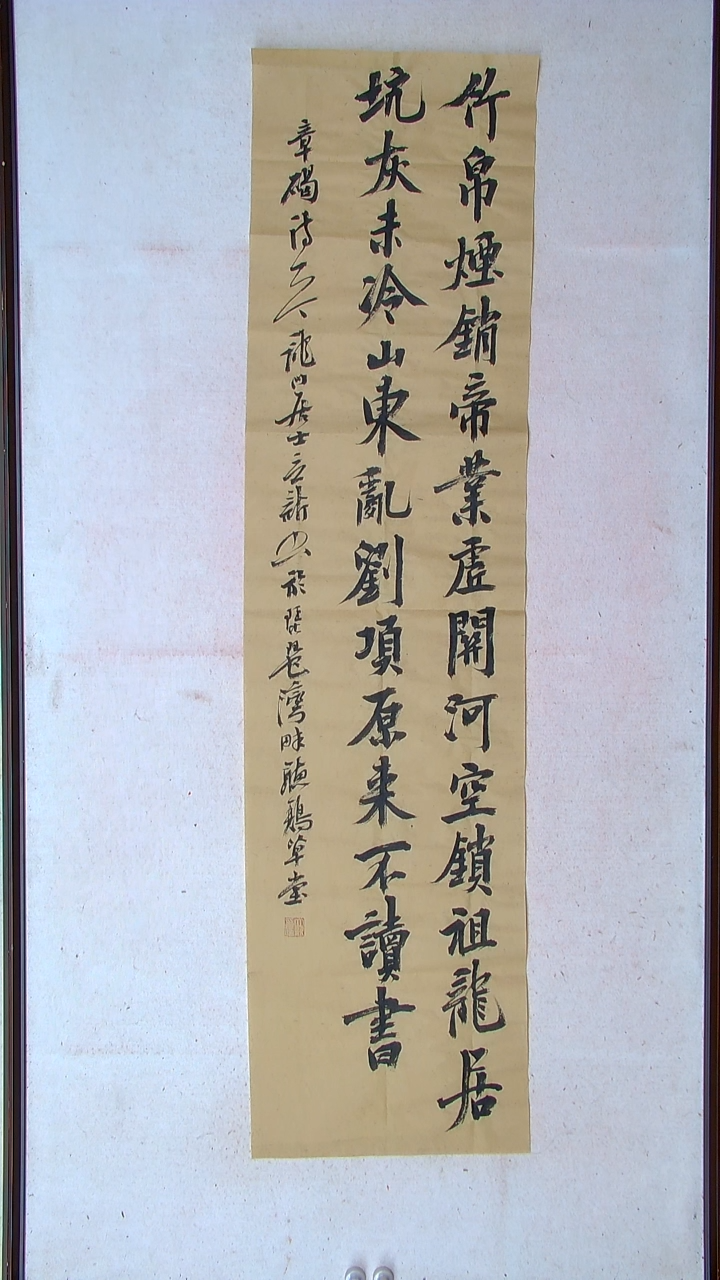 竹帛煙銷帝業虛關河空鎖祖龍居
坑灰未冷山東亂劉項原來不讀書
章碣詩一首龍山居士立新書於琵琶灣畔聽鶴草堂